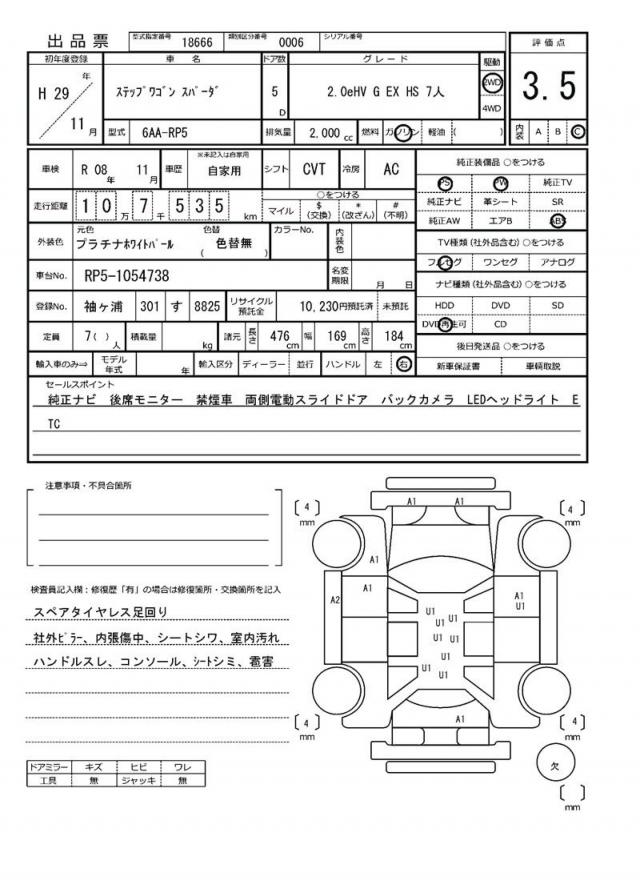 出品票 型式指定番号 18666 類別区分番号 0006 シリアル番号
評価点
3.5
内装 A B C
初年度登録 車名 ドア数 グレード 駆動
H 29 年 11 月
ステップワゴン スパーダ 5 D 2.0eHV G EX HS 7人 2WD 4WD
型式 6AA-RP5 排気量 2,000 cc 燃料 ガソリン 軽油 ( )
車検 R 08 年 11 月 車歴 ※未記入は自家用 自家用 シフト CVT 冷房 AC
走行距離 10万7千535 km ○をつける マイル $(交換) *(改ざん) #(不明)
外装色 元色 プラチナホワイトパール 色替 ( 色替無 ) カラーNo. 内装色
車台No. RP5-1054738 名変期限 月 日
登録No. 袖ヶ浦 301 す 8825 リサイクル預託金 10,230円預託済 未預託
定員 7( )人 積載量 kg 諸元 長さ 476 cm 幅 169 cm 高さ 184 cm
輸入車のみ⇒ モデル年式 年 輸入区分 ディーラー 並行 ハンドル 左 右
純正装備品 ○をつける
PS PW 純正TV
純正ナビ 革シート SR
純正AW エアB ABS
TV種類(社外品含む)○をつける
フルセグ ワンセグ アナログ
ナビ種類(社外品含む)○をつける
HDD DVD SD
DVD再生可 CD
後日発送品 ○をつける
新車保証書 車輌取説
セールスポイント
純正ナビ 後席モニター 禁煙車 両側電動スライドドア バックカメラ LEDヘッドライト E
TC
注意事項・不具合箇所
検査員記入欄:修復歴「有」の場合は修復箇所・交換箇所を記入
スペアタイヤレス足回り
社外ピラー、内張傷中、シートシワ、室内汚れ
ハンドルスレ、コンソール、シートシミ、雹害
ドアミラー キズ ヒビ ワレ
工具 無 ジャッキ 無
[ 4 ] mm
A1 A1
[ 4 ] mm
A1
A2 A1 A1
U1
U1 U1
U1 U1
U1 U1 U1
U1
U1 U1
[ 4 ] mm
A1
[ 4 ] mm
欠
[ ] mm